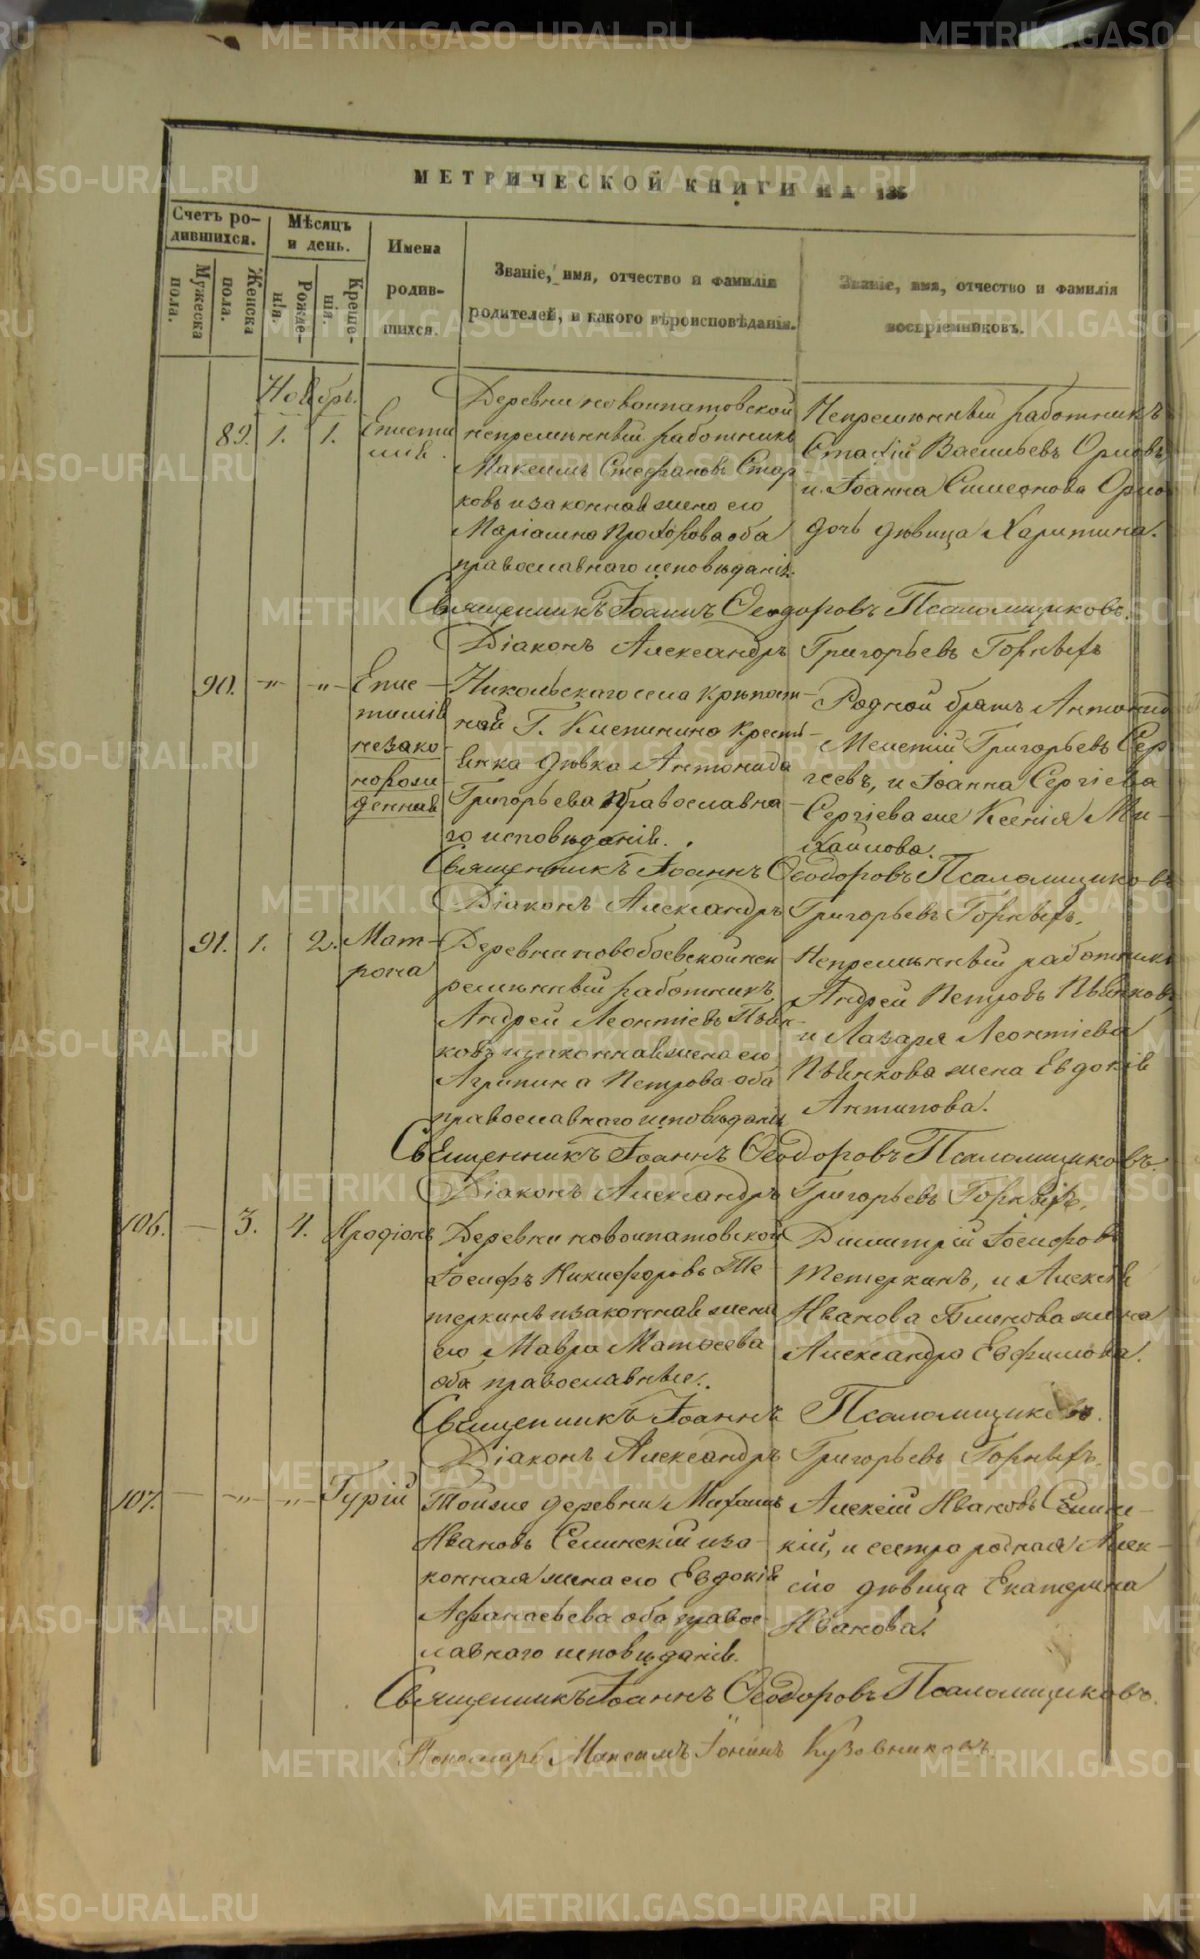 МЕТРИЧЕСКОЙ КНИГИ НА 186
Счетъ родившихся.
Мѣсяцъ и день.
Имена родившихся.
Званіе, имя, отчество и фамилія родителей, и какого вѣроисповѣданія.
Званіе, имя, отчество и фамилія воспріемниковъ.
Мужеска пола.
Женска пола.
Рожденія.
Крещенія.
Ноябрь.
89. 1. 1. Епистимія
Деревни новоипатовской
непремѣнный работникъ
Максимъ Стефановъ Стар
ковъ и законная жена его
Маріамна Прохорова оба
православнаго исповѣданія.
Непремѣнный работникъ
Стахій Васильевъ Орловъ
и Іоанна Симеонова Орло
дочь дѣвица Харитина.
Священникъ Іоаннъ Ѳеодоровъ Псаломщиковъ.
Діаконъ Александръ Григорьевъ Горныхъ
90. -"- -"- Епис-
тимія
незако
норож
денная
Никольскаго села крѣпост-
ной Г. Клепинина крестья
янка дѣвка Антонида
Григорьева православна-
го исповѣданія.
Родной братъ Антонид
Мелетій Григорьевъ Сер
гѣевъ, и Іоанна Сергіева
Сергіева же Ксенія Ми-
хайлова.
Священникъ Іоаннъ Ѳеодоровъ Псаломщиковъ
Діаконъ Александръ Григорьевъ Горныхъ.
91. 1. 2. Мат-
рона
Деревни новобоевской неп
ремѣнный работникъ
Андрей Леонтіевъ Пьян
ковъ и законная жена его
Агрипина Петрова оба
православнаго исповѣданія
Непремѣнный работникъ
Андрей Петровъ Пьянковъ
и Лазаря Леонтіева
Пьянкова жена Евдокія
Антипова.
Священникъ Іоаннъ Ѳеодоровъ Псаломщиковъ.
Діаконъ Александръ Григорьевъ Горныхъ.
106. — 3. 4. Иродіонъ
Деревни новоипатовской
Іосифъ Никифоровъ Те
теркинъ и законная жена
его Мавра Матѳеева
оба православные.
Димитрій Іосифовъ
Тетеркинъ, и Алексѣя
Иванова Блинова жена
Александра Евфимова.
Священникъ Іоаннъ Псаломщиковъ.
Діаконъ Александръ Григорьевъ Горныхъ.
107. — -"- -"- Гурій
Тойже деревни
Ивановъ Селинскій и за-
конная жена его Евдокія
Афанасьева оба правос-
лавнаго исповѣданія.
Алексій Ивановъ Селинс-
кій, и сестра родная Алек-
сію дѣвица Екатерина
Иванова.
Священникъ Іоаннъ Ѳеодоровъ Псаломщиковъ.
Пономарь Максимъ Іонинъ Кузовниковъ
METRIKI.GASO-URAL.RU